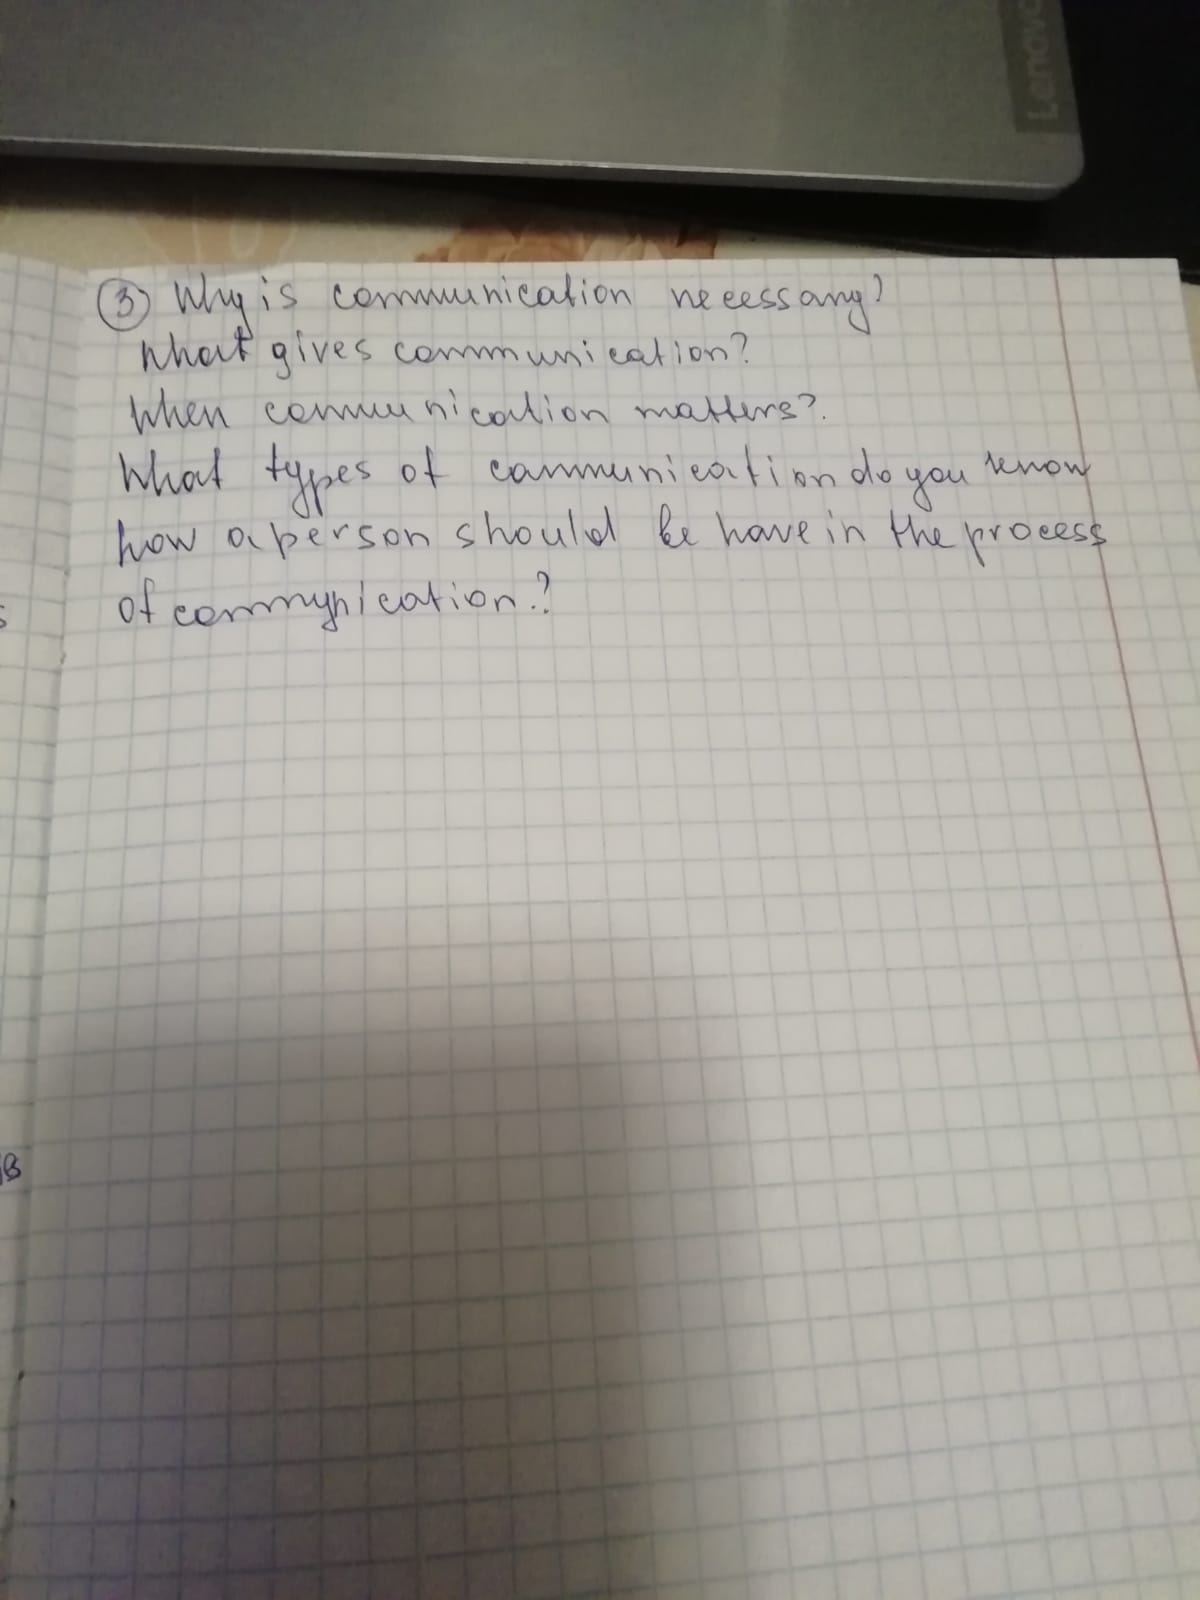 Lenovo
③ Why is communication necessary?
What gives communication?
When communication matters?.
What types of communication do you know
how a person should be have in the process
of commynication.?
s